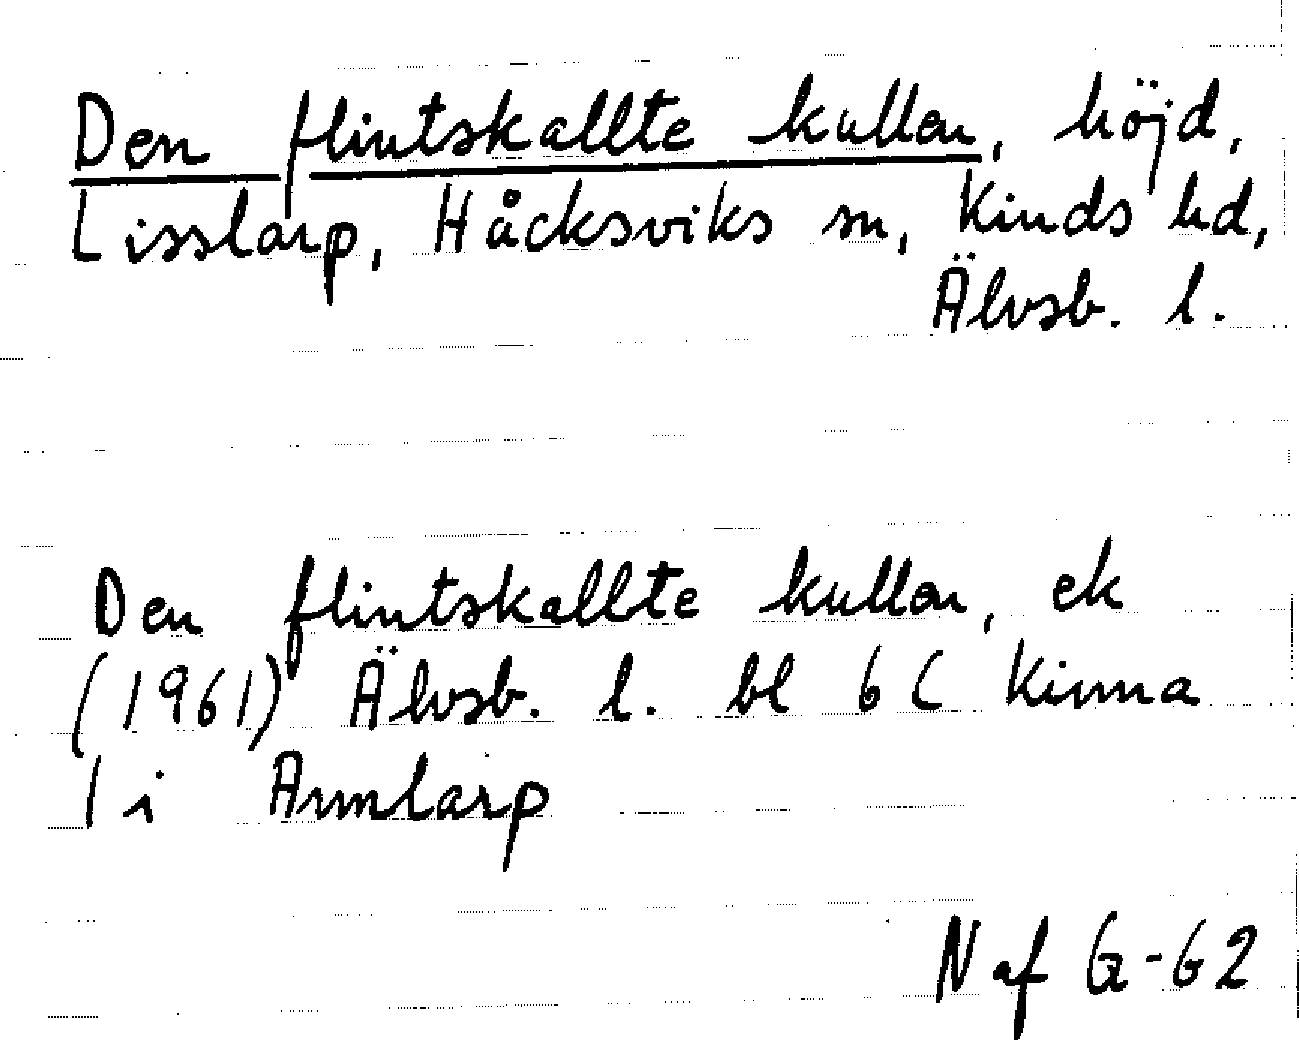 Den flintskallte kullen, höjd,
Lisslarp, Håcksviks sn, Kinds hd,
Älvsb. l.
Den flintskallte kullen, ek
(1961) Älvsb. l. bl 6 C Kinna
1 i Arnnlarp
N af G-62